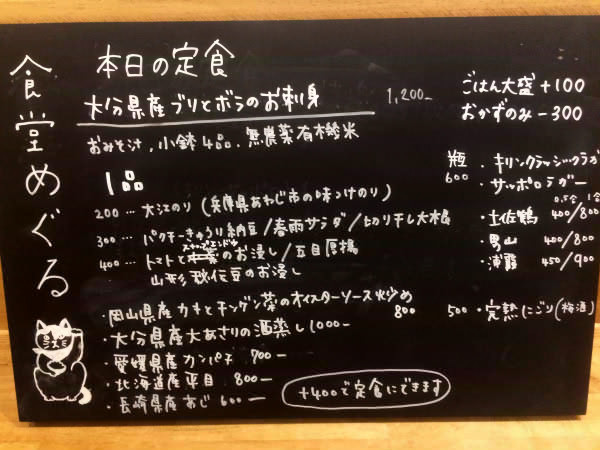 食堂めぐる
本日の定食
大分県産ブリとボラのお刺身 1,200-
おみそ汁、小鉢4品、無農薬有機米
ごはん大盛+100
おかずのみ-300
1品
200…大江のり(兵庫県あわじ市の味つけのり)
300…パクチーきゅうり納豆/春雨サラダ/切り干し大根
スナップエンドウ
400…トマトとのお浸し/五目厚揚
山形秘伝豆のお浸し
・岡山県産カキとチンゲン菜のオイスターソース炒め 800
・大分県産大あさりの酒蒸し1000-
・愛媛県産カンパチ 700-
・北海道産平目 800-
・長崎県産あじ 600-
+400で定食にできます
瓶
600
・キリンクラシックラガー
・サッポロラガー
0.5合 1合
・土佐鶴 400/800
・男山 400/800
・浦霞 450/900
500・完熟にごり(梅酒)